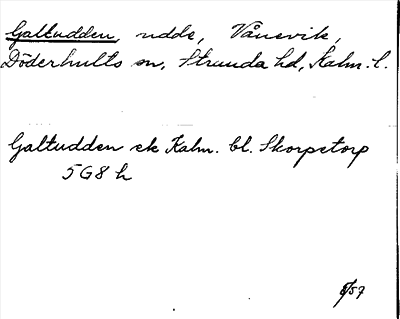 Galtudden, udde, Vånevik,
Döderhults sn, Stranda hd, Kalm. l.
Galtudden ek Kalm. bl. Skorpetorp
5G8h
8/57